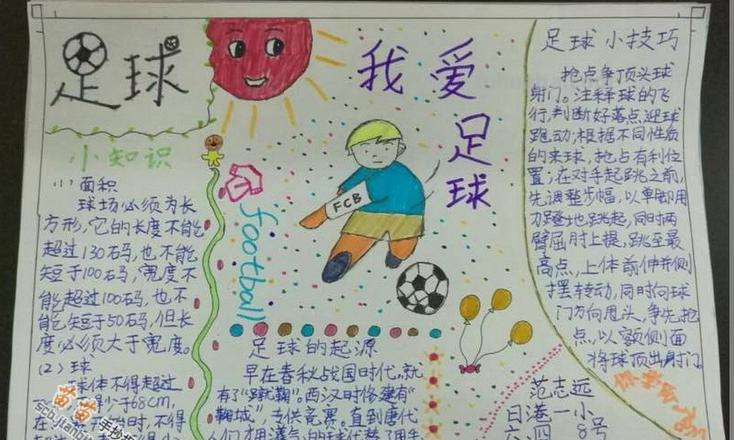 足球
小知识
(1) 面积
球场必须为长
方形,它的长度不能
超过130石码,也不能
短于100石码,宽度不
能超过100码,也不
能短于50码,但长
度必须大于宽度。
(2) 球
球体不得超过
于68cm,
时,不得
苗苗手抄报
我爱足球
football
FCB
足球的起源
早在春秋战国时代,就
有了"蹴鞠"。西汉时修建有
"鞠城",专供竞赛。直到唐代
足球小技巧
抢点争顶头球
射门。注释球的飞
行,判断好落点,迎球
跑动,根据不同性质
的来球,抢占有利位
置;在对手起跳之前,
先调整步幅,以单脚用
力蹬地跳起,同时两
臂屈肘上提,跳至最
高点,上体前伸并侧
摆转动,同时向球
门方向甩头,争先抢
点,以额侧面
将球顶出射门。
范志远
日港一小
六.四 8号